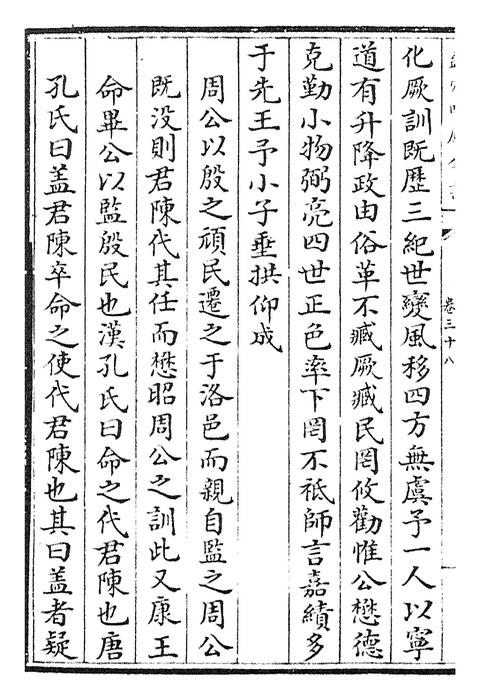 卷三十八
化厥訓既歷三紀世變風移四方無虞予一人以寧
道有升降政由俗革不臧厥臧民罔攸勸惟公懋德
克勤小物弼亮四世正色率下罔不祗師言嘉績多
于先王予小子垂拱仰成
周公以殷之頑民遷之于洛邑而親自監之周公
既没則君陳代其任而懋昭周公之訓此又康王
命畢公以監殷民也漢孔氏曰命之代君陳也唐
孔氏曰盖君陳卒命之使代君陳也其曰盖者疑